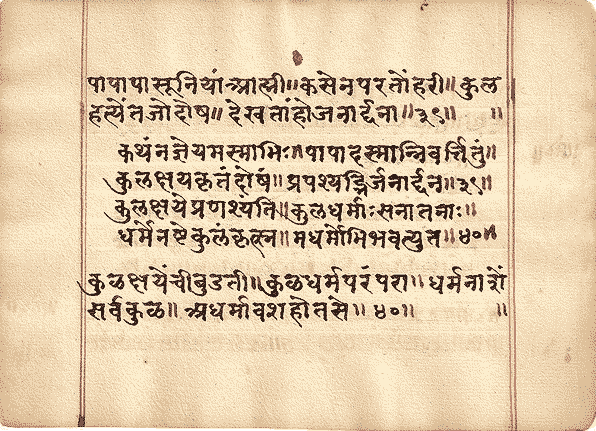 पापापासूनियां आह्मी॥ कसे न परतों हरी॥ कुल
हत्येंत जो दोष॥ देखतां हो जनार्दना॥३९॥ ॥
कथं न ज्ञेयमस्माभिः॥ पापादस्मान्निवर्त्तितुं॥
कुलक्षयकृतं दोषं॥ प्रपश्यद्भिर्जनार्दन॥३९॥
कुलक्षये प्रणश्यंति॥ कुलधर्माः सनातनाः॥
धर्मे नष्टे कुलं कृत्स्न॥ मधर्मोभिभवत्युत॥४०॥
कुळक्षयें ची बुडती॥ कुळधर्म परंपरा॥ धर्मनाशें
सर्व कुळ॥ अधर्मा वश होतसे॥ ४०॥ ॥